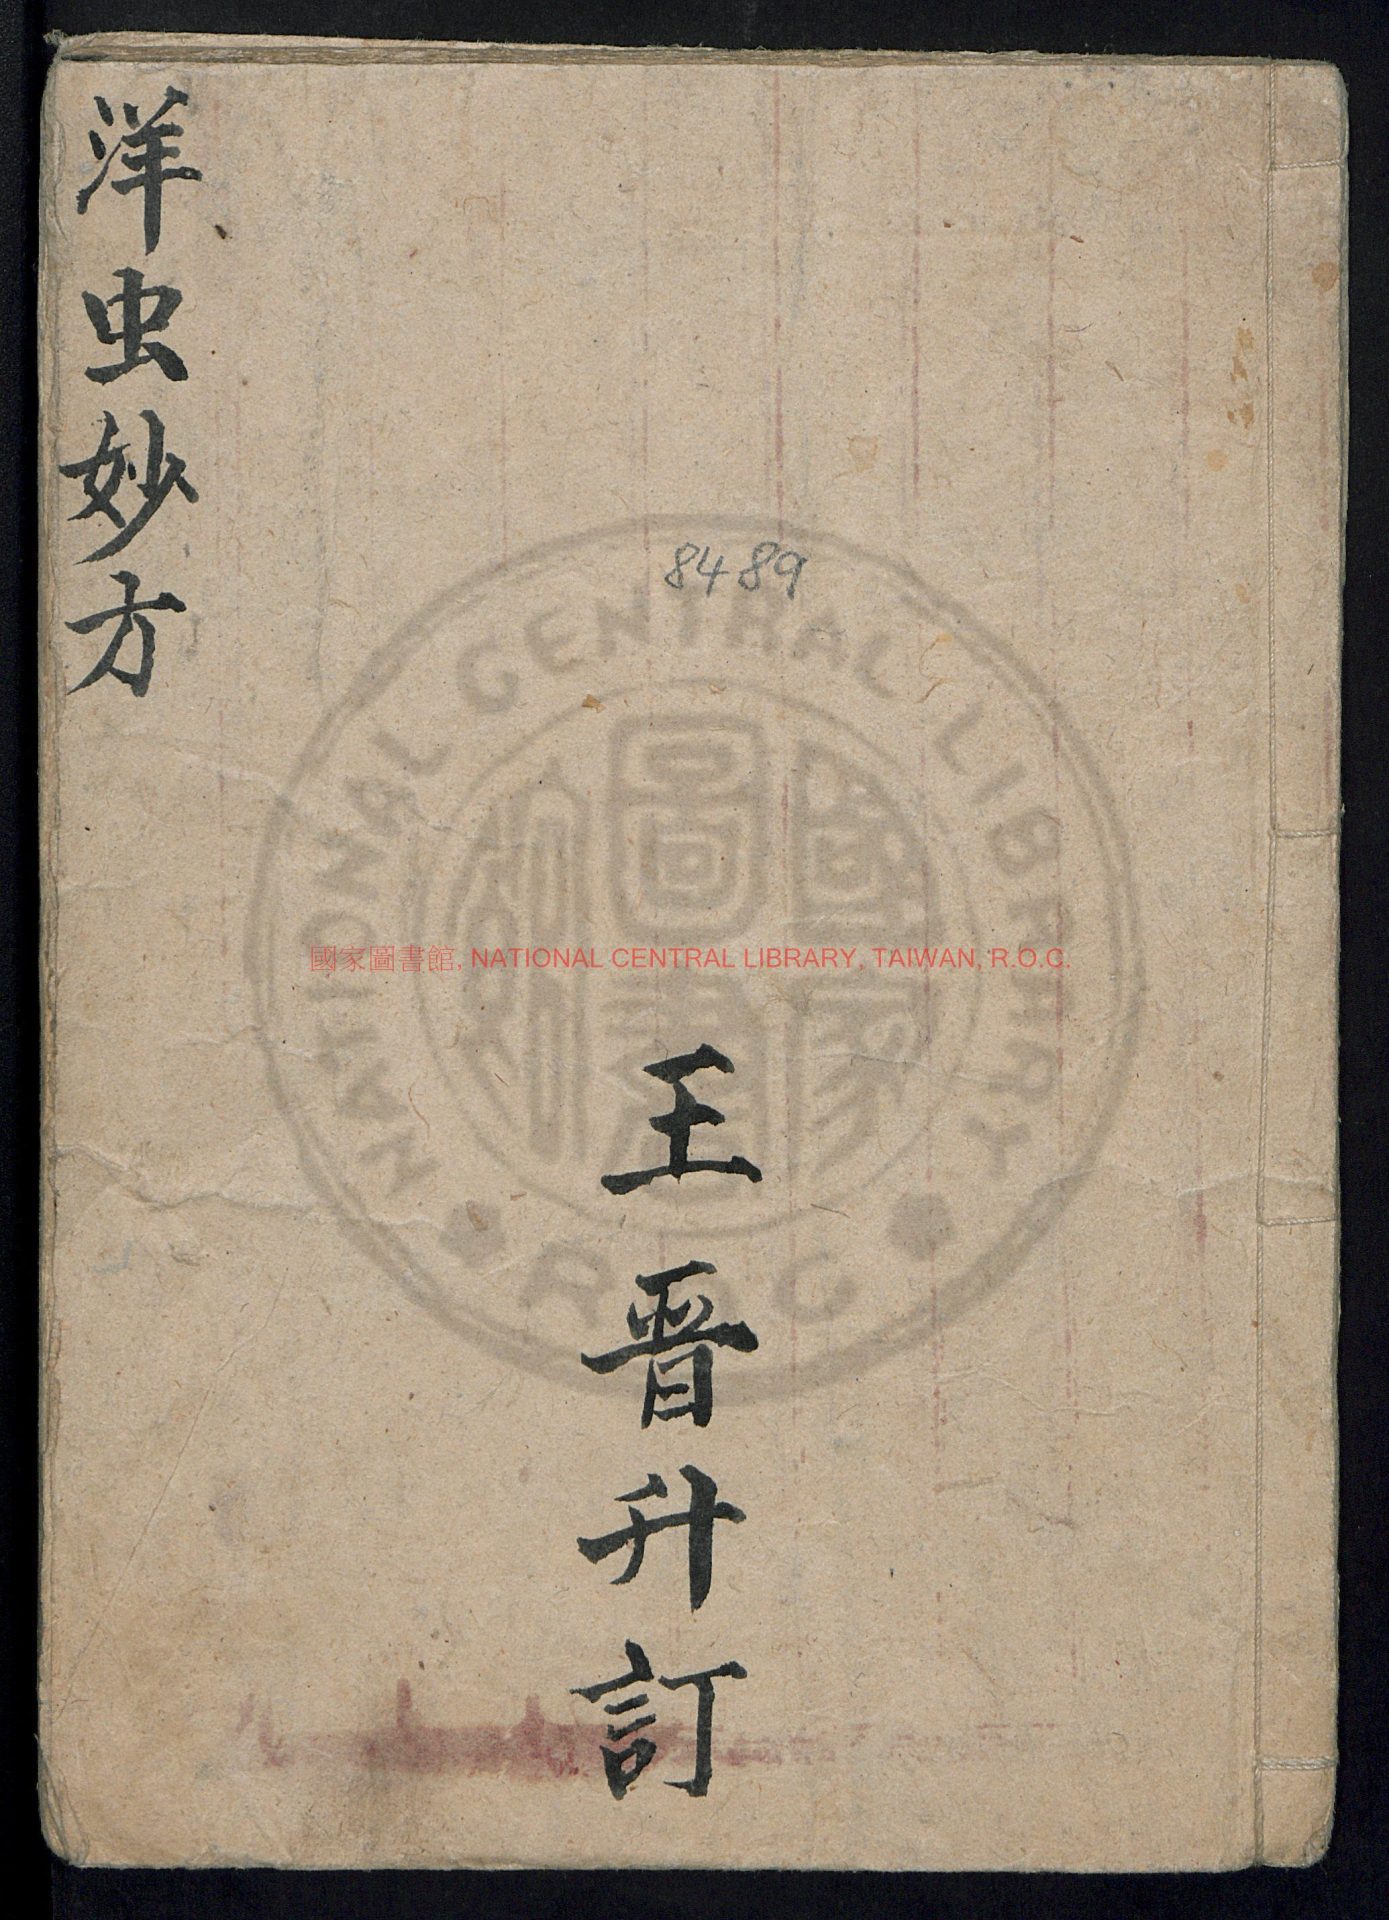 洋虫妙方
8489
國家圖書館, NATIONAL CENTRAL LIBRARY, TAIWAN, R.O.C.
NATIONAL CENTRAL LIBRARY
國家圖書館
R.O.C
王晉升訂